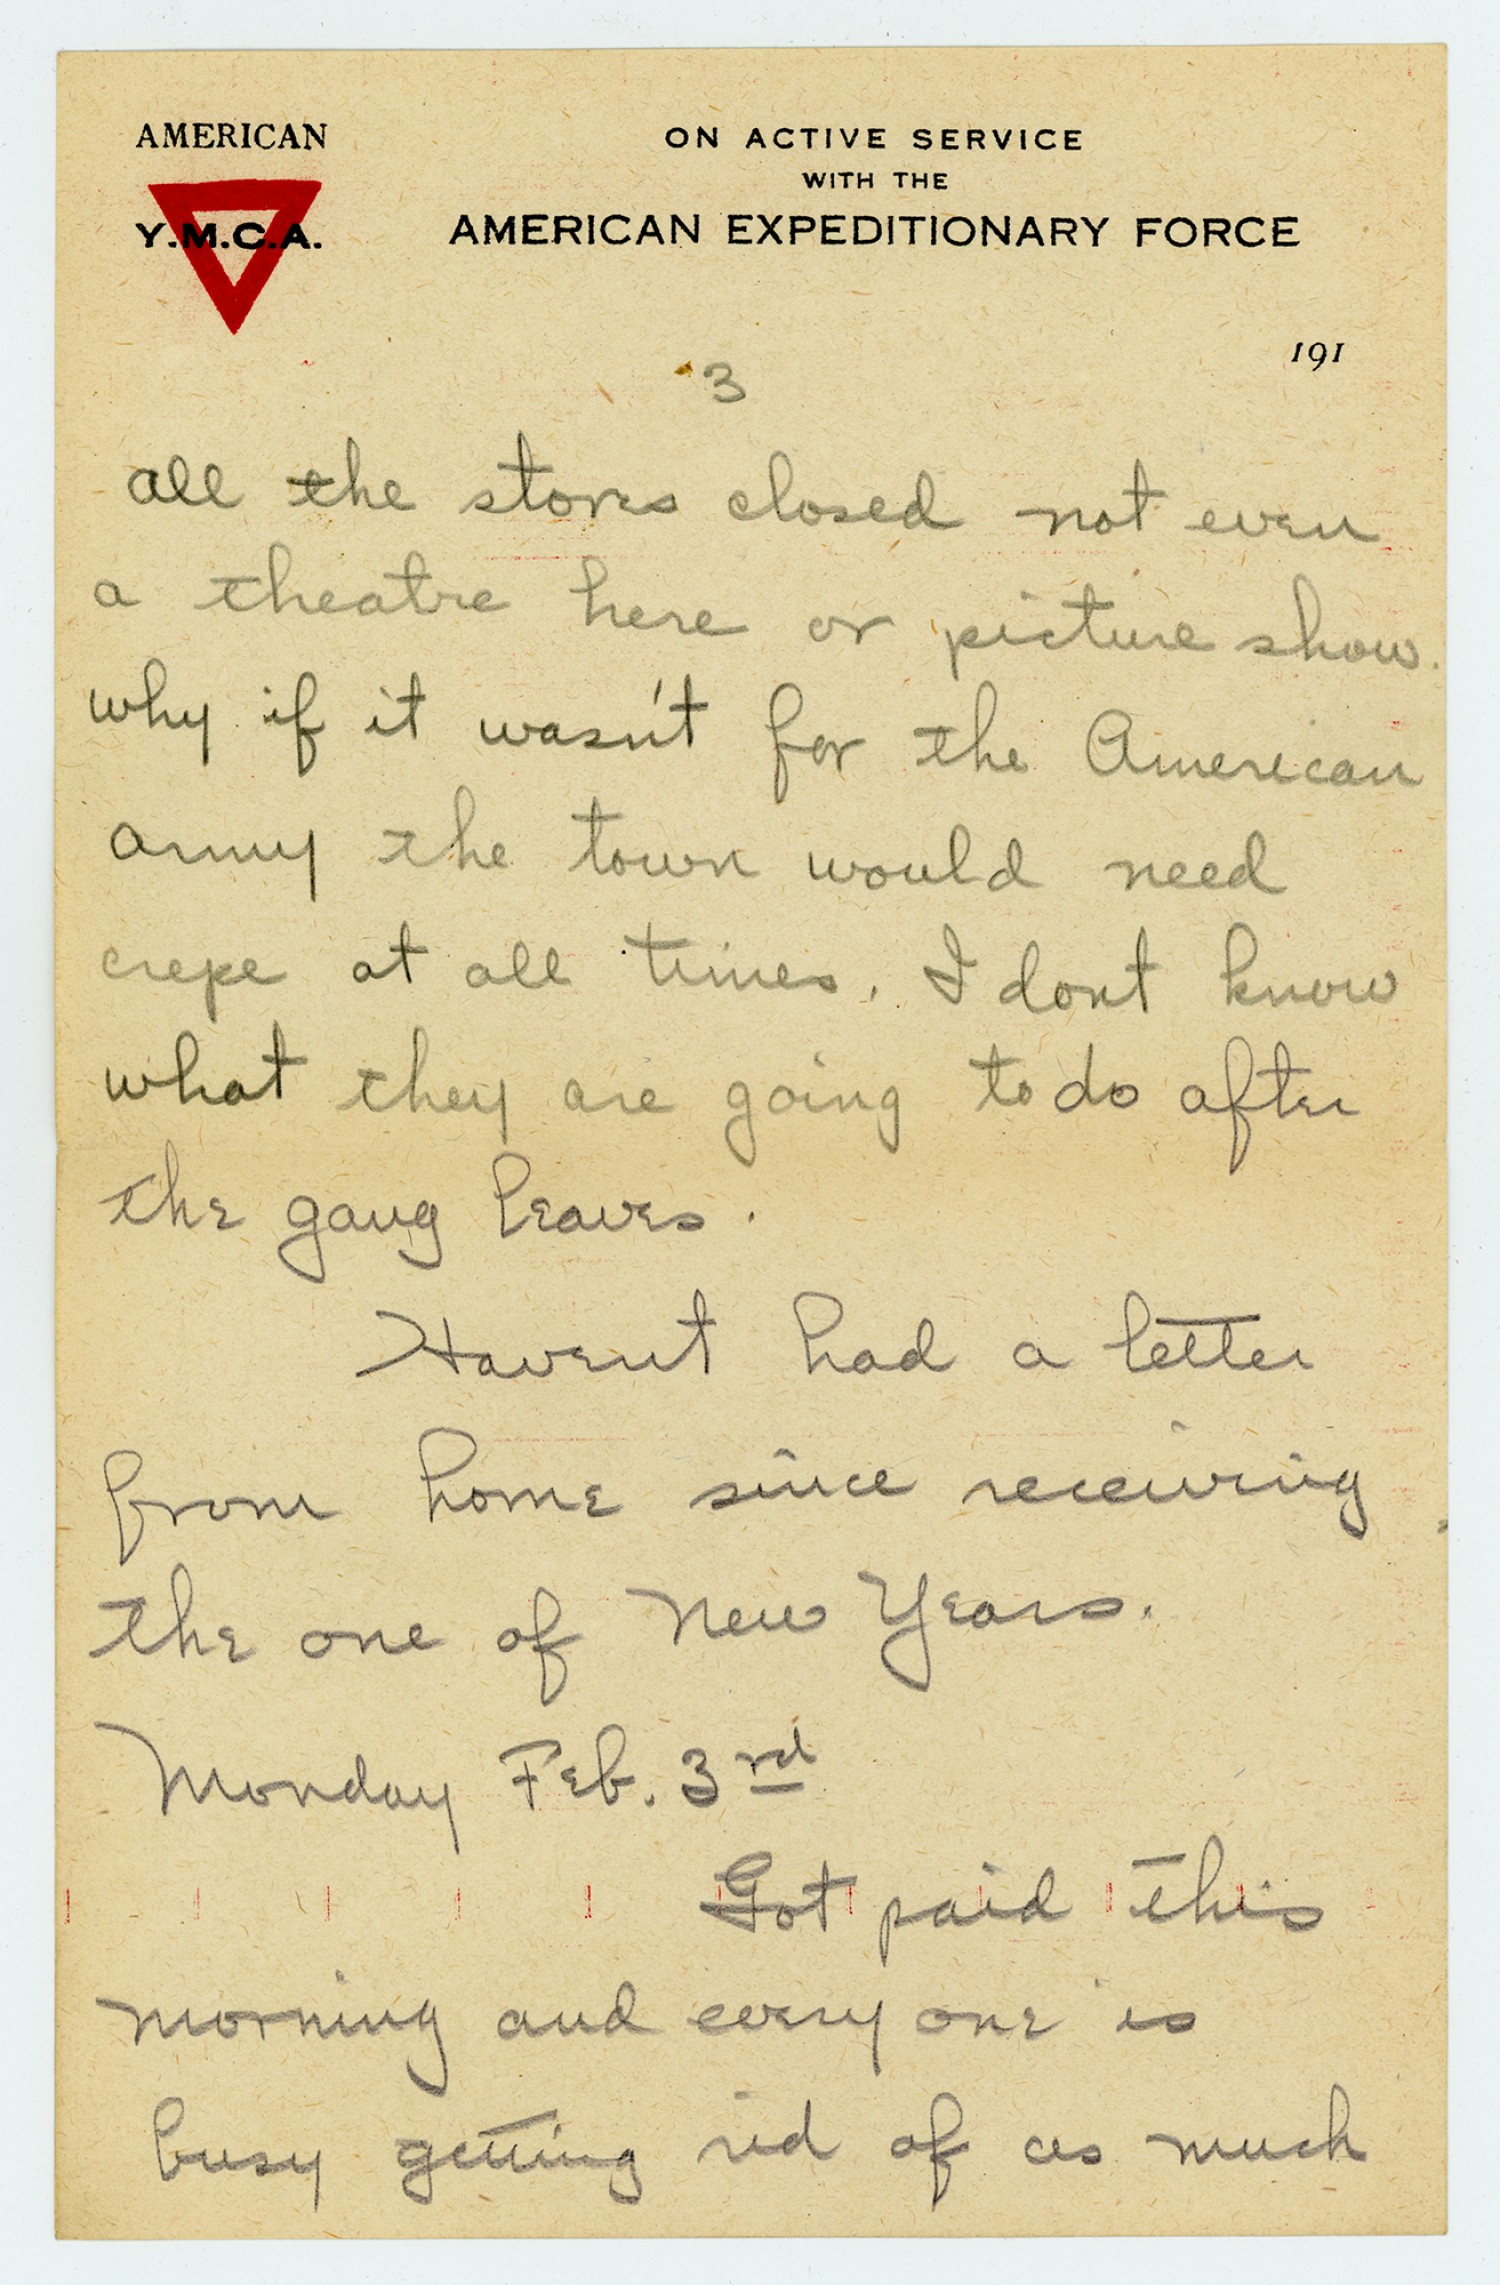 AMERICAN
Y.M.C.A.
ON ACTIVE SERVICE
WITH THE
AMERICAN EXPEDITIONARY FORCE
191
3
all the stores closed not even
a theatre here or picture show.
why if it wasn't for the American
army the town would need
crepe at all times. I dont know
what they are going to do after
the gang leaves.
Havent had a letter
from home since receiving
the one of New Years.
Monday Feb. 3rd
Got paid this
morning and every one is
busy getting rid of as much